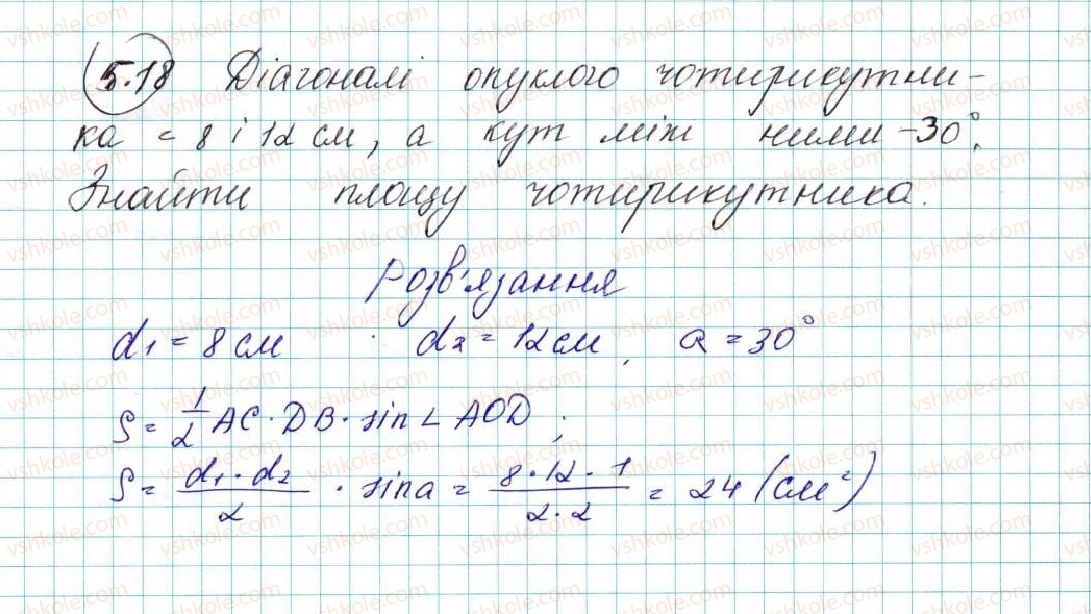 5.18 Діагоналі опуклого чотирикутни-
ка = 8 і 12 см, а кут між ними - 30°.
Знайти площу чотирикутника.
Розв'язання
d₁ = 8 см d₂ = 12 см, a = 30°
S = 1/2 AC · DB · sin ∠ AOD;
S = d₁ · d₂ / 2 · sin a = 8 · 12 · 1 / 2 · 2 = 24 (см²)